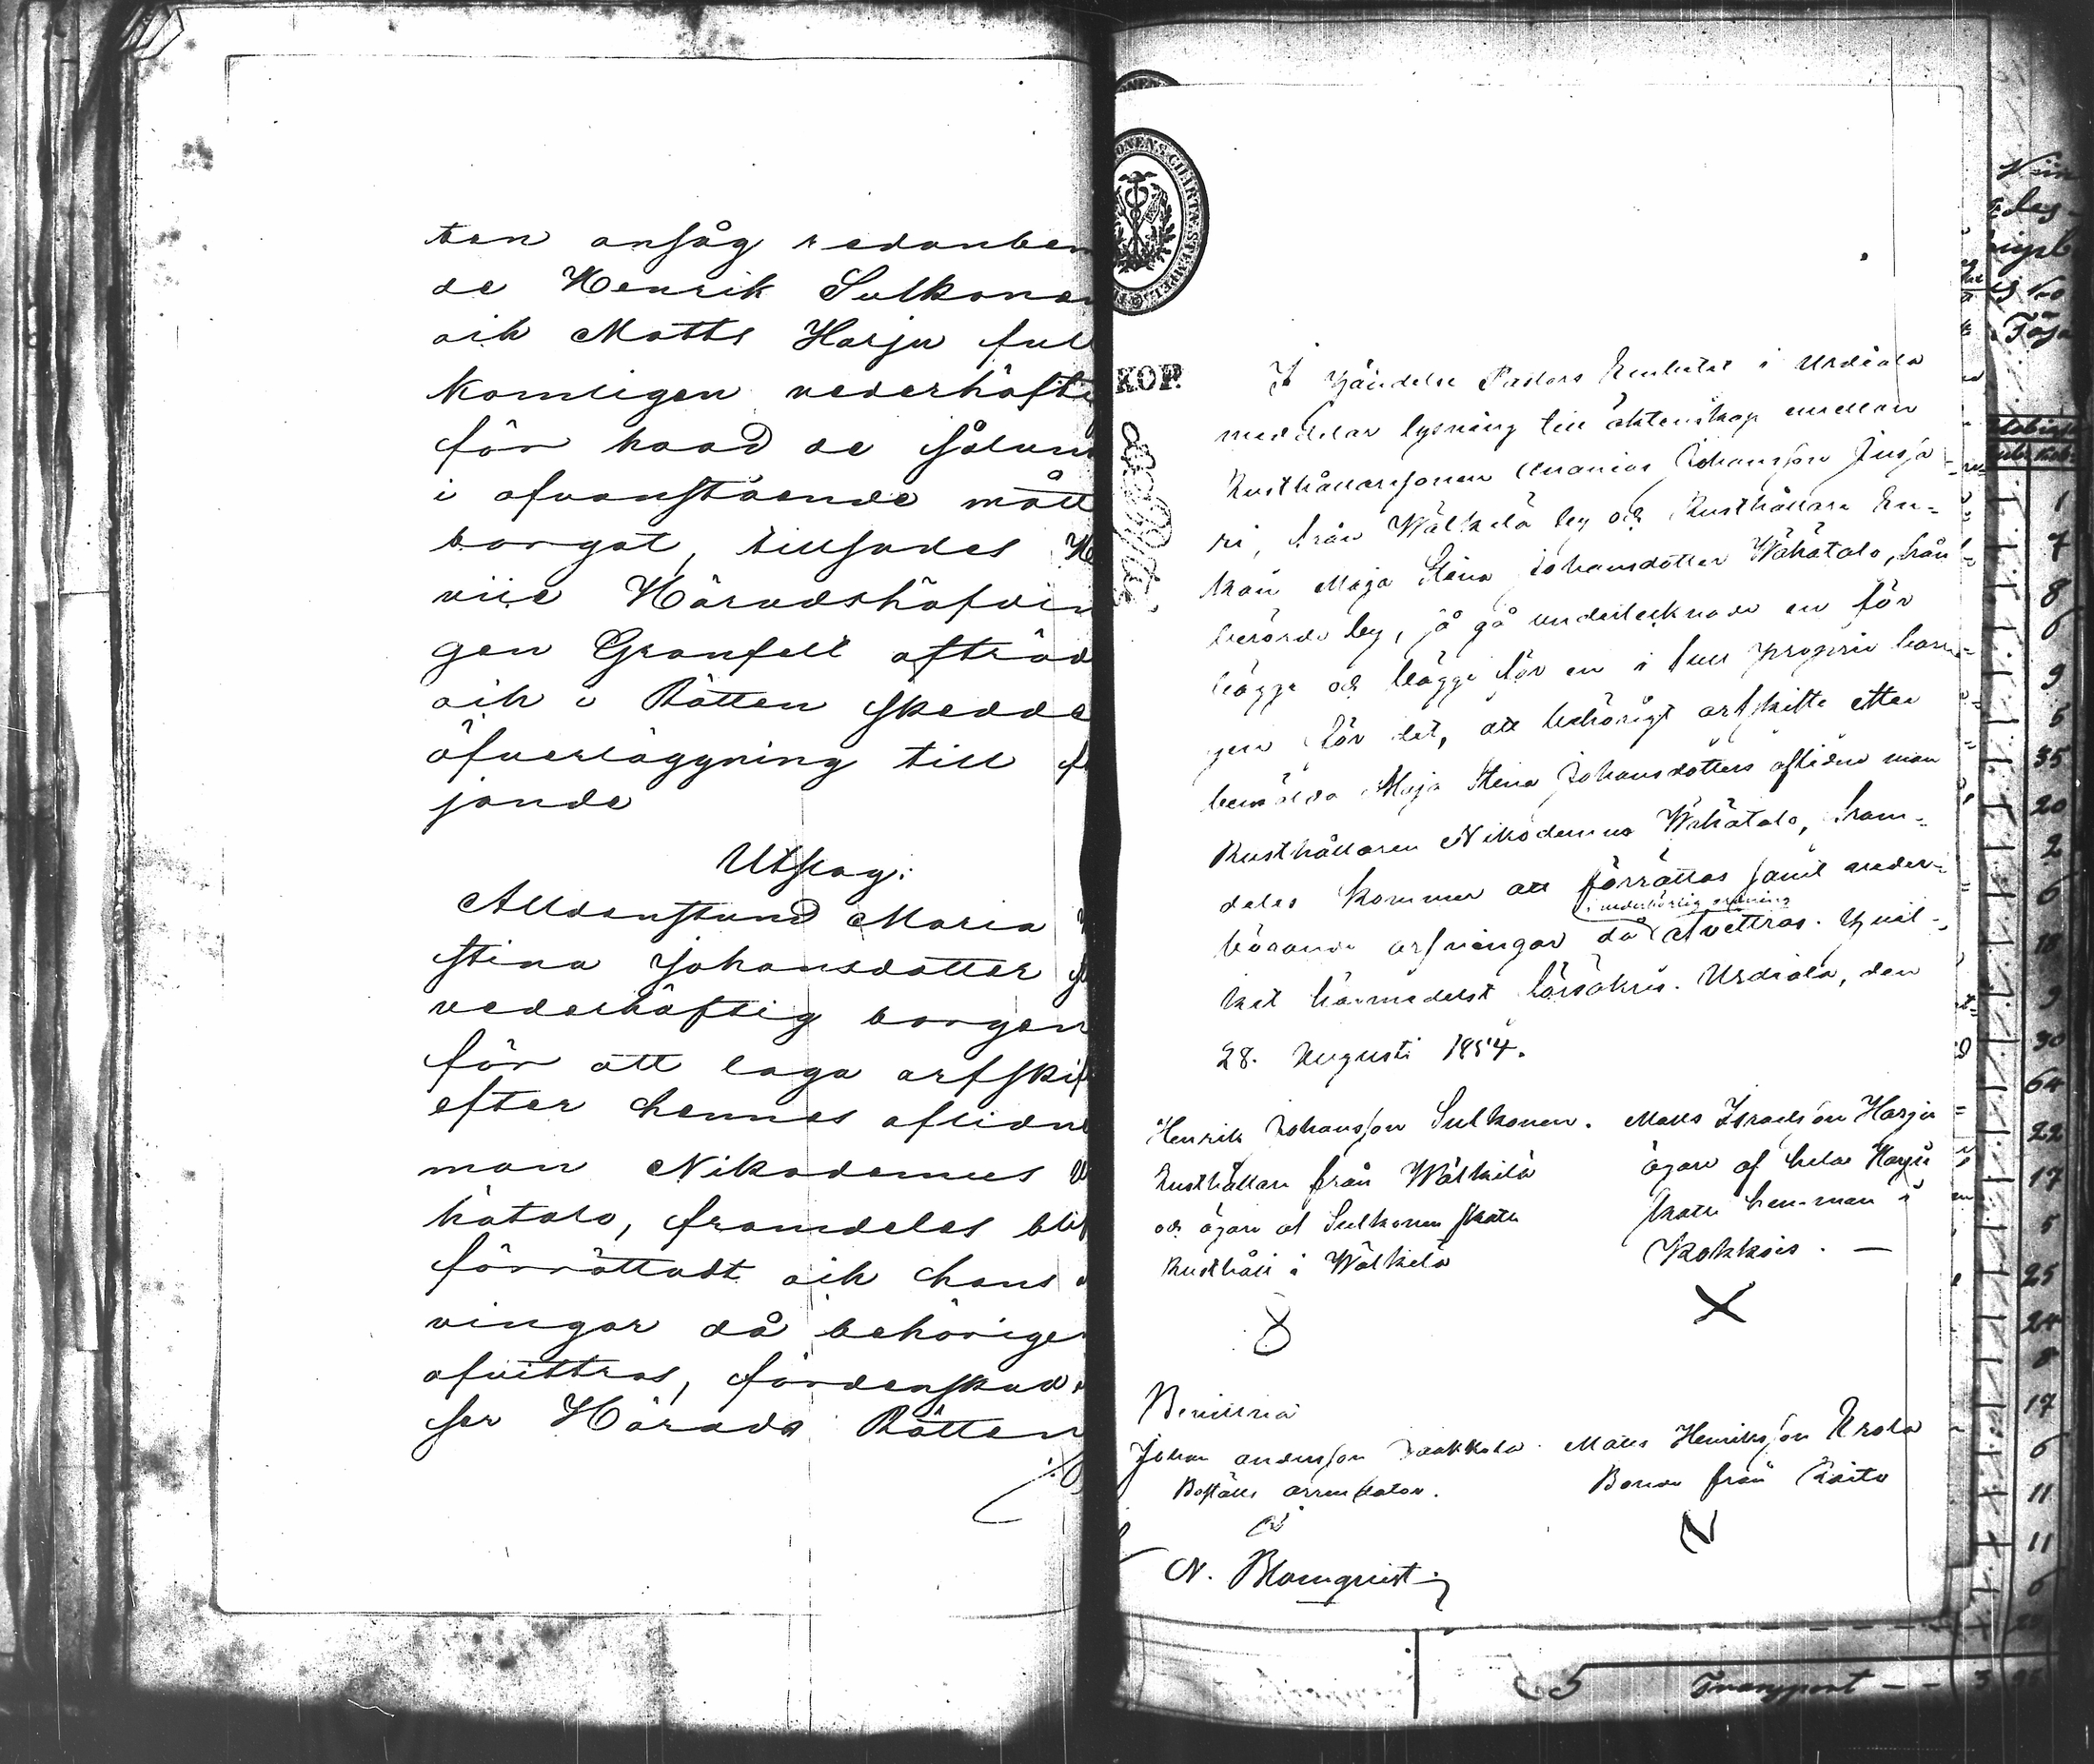 ten ansåg redanbem
de Henrik Sulkonen
och Matts Harju full
komligen vederhäfti
för hvad de sålun
i ofvanstående mått
borgat, tillsades He
vice Häradshöfdin
gen Granfelt afträd
och i Rätten skedde
öfverläggning till f
jande
Utslag:
Alldenstund Maria
Stina Johansdotter
vederhäftig borgen
för att laga arfskif
efter hennes aflidne
man Nikodemus W
hätalo, framdeles blif
förrättadt och hans
vingar då behörigen
afvittras, fördenskul
ser Härads Rätten
KOP.
I händelse Pastors Embetet i Urdiala
meddelar lysning till äktenskap emellan
Rusthållaresonen Ananias Johansson Jusja
ri, från Wälkilä by och Rusthållare En=
kan Maja Stina Johansdotter Wähätalo, från
berörde by, så gå undertecknade en för
begge och begge för en i full proprie borg=
gen för det, att behörigt arfskifte efter
bemälda Maja Stina Johansdotters aflidne man
Rusthållaren Nikodemus Wähätalo, fram=
deles kommer att förrättas samt veder=
i vederbörlig ordning
börande arfvingar då afvittras. Hvil=
ket härmedelst försäkras. Urdiala, den
28. Augusti 1854.
Henrik Johansson Sulkonen.
Rusthållare från Wälkilä
och ägare af Sulkonen skatte
Rusthåll i Wälkilä
Matts Israelsson Harju
ägare af hela Harju
skatte hemman i
Kokkois. —
Bevittna
Johan Andersson Jaakkola.
Boställs arrendator.
Matts Henriksson Erola
Bonde från
N. Blomqvist
Transport — — 3